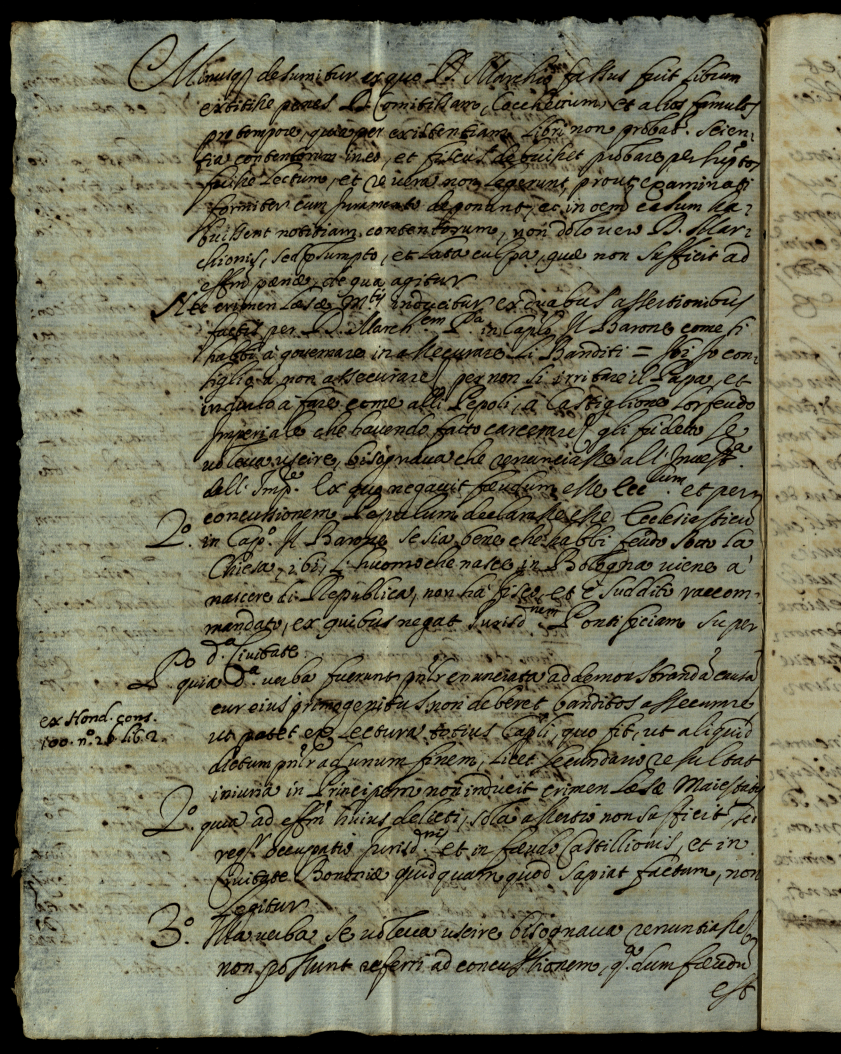 Minusq; desumitur ex quo D. Marchio fassus fuit Librum
extitisse penes D. Comitissam, Coccherum, et alios famulos
pro tempore, quia per existentiam Libri non probat.r Scien-
tia contentorum in eo, et fiscus debuisset probare per
fuisse Lectum, et re vera non legerunt, prout examinati
formiter cum juramento deponunt, et in oem casum ha-
buissent notitiam contentorum, non dolo vero D. Mar-
chionis, sed psumpto, et Lata culpa, quæ non sufficit ad
effm pænæ, de qua agitur
Nec crimen Læsæ M.tis inducitur ex duabus assertionibus
factis per D. March.em P.a in Cap.lo Il Barone come si
habbi à governare in assecurare Li Banditi = Poi so con-
siglio à non assecurare, per non si irritare il Papa, et
in quito à fare come alli Pepoli, à Castiglione lor feudo
Imperiale che havendo fatto carcerare, gli fu detto se
voleva uscire, bisognava che renunciasse all' Invest.a
dell' Imp.re Ex quo negavit fæudum esse Ecc.cum et per
concussionem Papalem declarasse esse Ecclesiasticu
2.o in Cap.o Il Barone se sia bene che habbi feudo sotto la
Chiesa, ibi, L' huomo che nasce in Bologna viene à
nascere di Republica, non hà fisco, et è suddito raccom-
mandato, ex quibus negat Jurisd.nem Pontificiam super
d.a Civitate
P.o quia d.a verba fuerunt pnlr enunciata ad demonstranda causa
cur eius primogenitus non deberet banditos assecurare
ut patet ex Lectura totius Capli, quo fit, ut aliquid
dictum pnlr ad unum finem, licet secundario resultat
iniuria in Principem non inducit crimen Læsæ Maiestatis
ex Hond. cons.
100. n.o 26 lib. 2.
2.o quia ad effm huius delicti, sola assertio non sufficit, sed
reqr. occupatio Jurisd.nis, et in fæudo Castillionis, et in
Civitate Bononiæ quidquam quod sapiat factum, non
Legitur
3.o Illa verba se voleva uscire bisognava renuntiasse,
non possunt referri ad concussionem, q.a dum fæudu
est